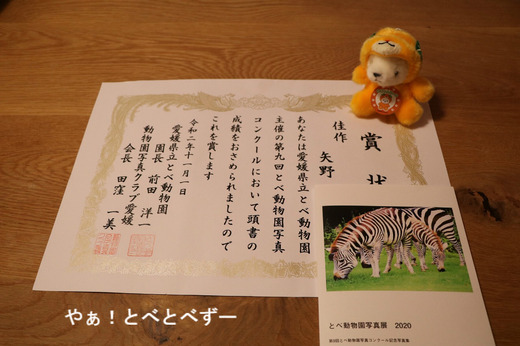 賞状
佳作
矢野
あなたは愛媛県立とべ動物園
主催の第九回とべ動物園写真
コンクールにおいて頭書の
成績をおさめられましたので
これを賞します
令和二年十一月一日
愛媛県立とべ動物園
園長 前田 洋一
動物園写真クラブ愛媛
会長 田窪 一美
とべ動物園写真展 2020
第9回とべ動物園写真コンクール記念写真集
やぁ！とべとべずー